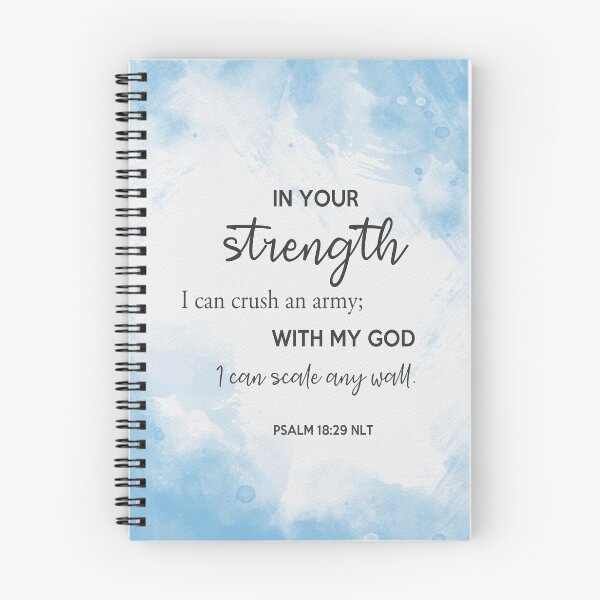 IN YOUR
strength
I can crush an army;
WITH MY GOD
I can scale any wall.
PSALM 18:29 NLT